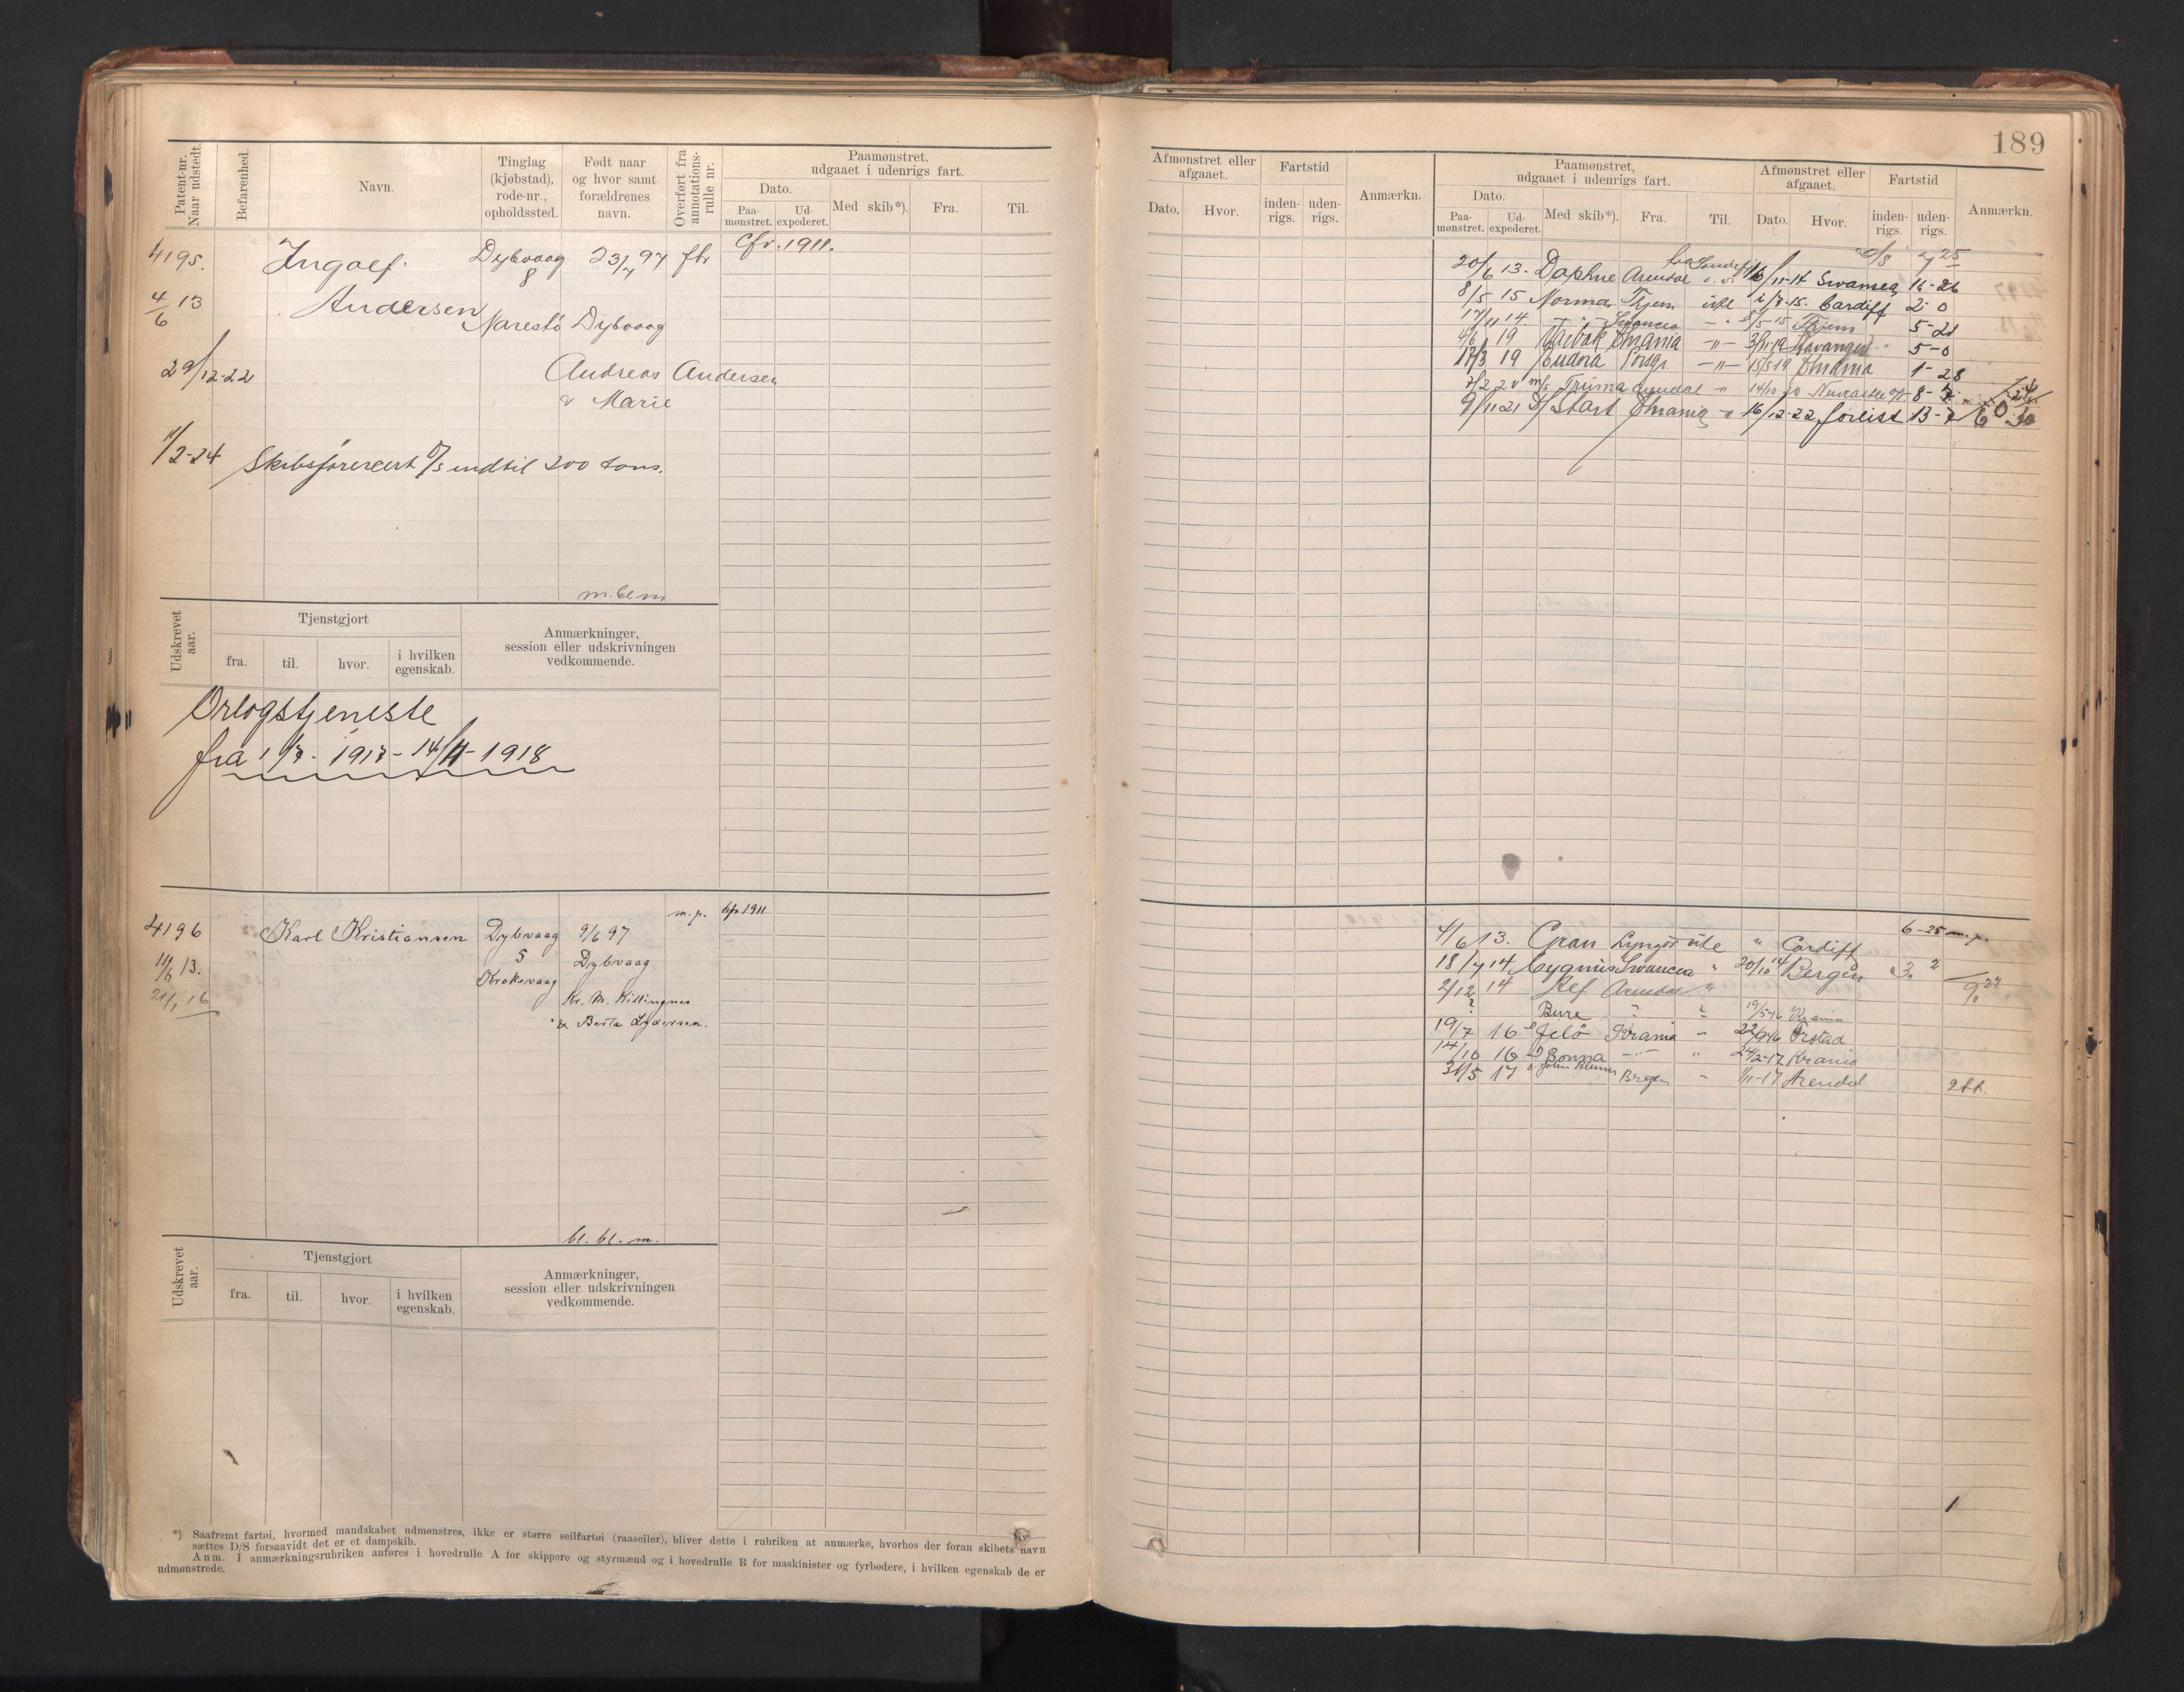 189
Patent-nr. Naar udstedt.
Befarenhed.
Navn.
Tinglag (kjøbstad), rode-nr., opholdssted.
Født naar og hvor samt forældrenes navn.
Overført fra annotations-rulle nr.
Paamønstret, udgaaet i udenrigs fart.
Dato.
Paa-mønstret.
Ud-expederet.
Med skib*).
Fra.
Til.
Afmønstret eller afgaaet.
Dato.
Hvor.
Fartstid
inden-rigs.
uden-rigs.
Anmærkn.
Paamønstret, udgaaet i udenrigs fart.
Dato.
Paa-mønstret.
Ud-expederet.
Med skib*).
Fra.
Til.
Afmønstret eller afgaaet.
Dato.
Hvor.
Fartstid
inden-rigs.
uden-rigs.
Anmærkn.
4195. Ingolf Dybvaag 23/7 97 fbr Cfr. 1911.
8
4/6 13 Andersen
Narestö Dybvaag
29/12-22 Andreas Andersen
& Marie
11/2-24 Skibsförercert D/S indtil 200 tons.
20/6 13. Daphne Arendal /11-14 Swansea 16-26
8/5 15 Norma Thjem 15. Cardiff 2-0
17/11 14. Swansea 8/5-15 Thjem 5-21
19 Chrania Stavanger 5-0
19 Eudora Porsgr. -"- 15/5 19 Chrania 1-28
7/2 20 m/s Truma Arendal " 14/10 20
9/11 21 D/S Start Chrania 16/12-22 forlist 13-7
m.bl.m
Udskrevet aar.
Tjenstgjort
fra.
til.
hvor.
i hvilken egenskab.
Anmærkninger, session eller udskrivningen vedkommende.
Orlogstjeneste
fra 1/7-1917-14/4-1918
4196 Karl Kristiansen Dybvaag 9/6 97 m.p. bfr 1911
5 Dybvaag
11/6 13.
Kroksvaag
21/1 16 Kr. M. Killingnes
& Berta Lydersen.
4/6 13. Gran Lyngör ute " Cardiff 6-25 m.p.
18/7 14 Cygnus Swansea " 20/10 14 Bergen 3. 2
2/12 14 Alf Arendal "
? Bure 19/5-16 Krania
19/7 16 Jelö Krania - 22/9-16 Frstad
14/10 16 Bonna -"- " 24/2-17 Krania
31/5 17 John Blumer Bergen - 1/11-17 Arendal
bl. bl. m.
Udskrevet aar.
Tjenstgjort
fra.
til.
hvor.
i hvilken egenskab.
Anmærkninger, session eller udskrivningen vedkommende.
*) Saafremt fartøi, hvormed mandskabet udmønstres, ikke er større seilfartøi (raaseiler), bliver dette i rubriken at anmærke, hvorhos der foran skibets navn
sættes D/S forsaavidt det er et dampskib.
Anm. I anmærkningsrubriken anføres i hovedrulle A for skippere og styrmænd og i hovedrulle B for maskinister og fyrbødere, i hvilken egenskab de er
udmønstrede.